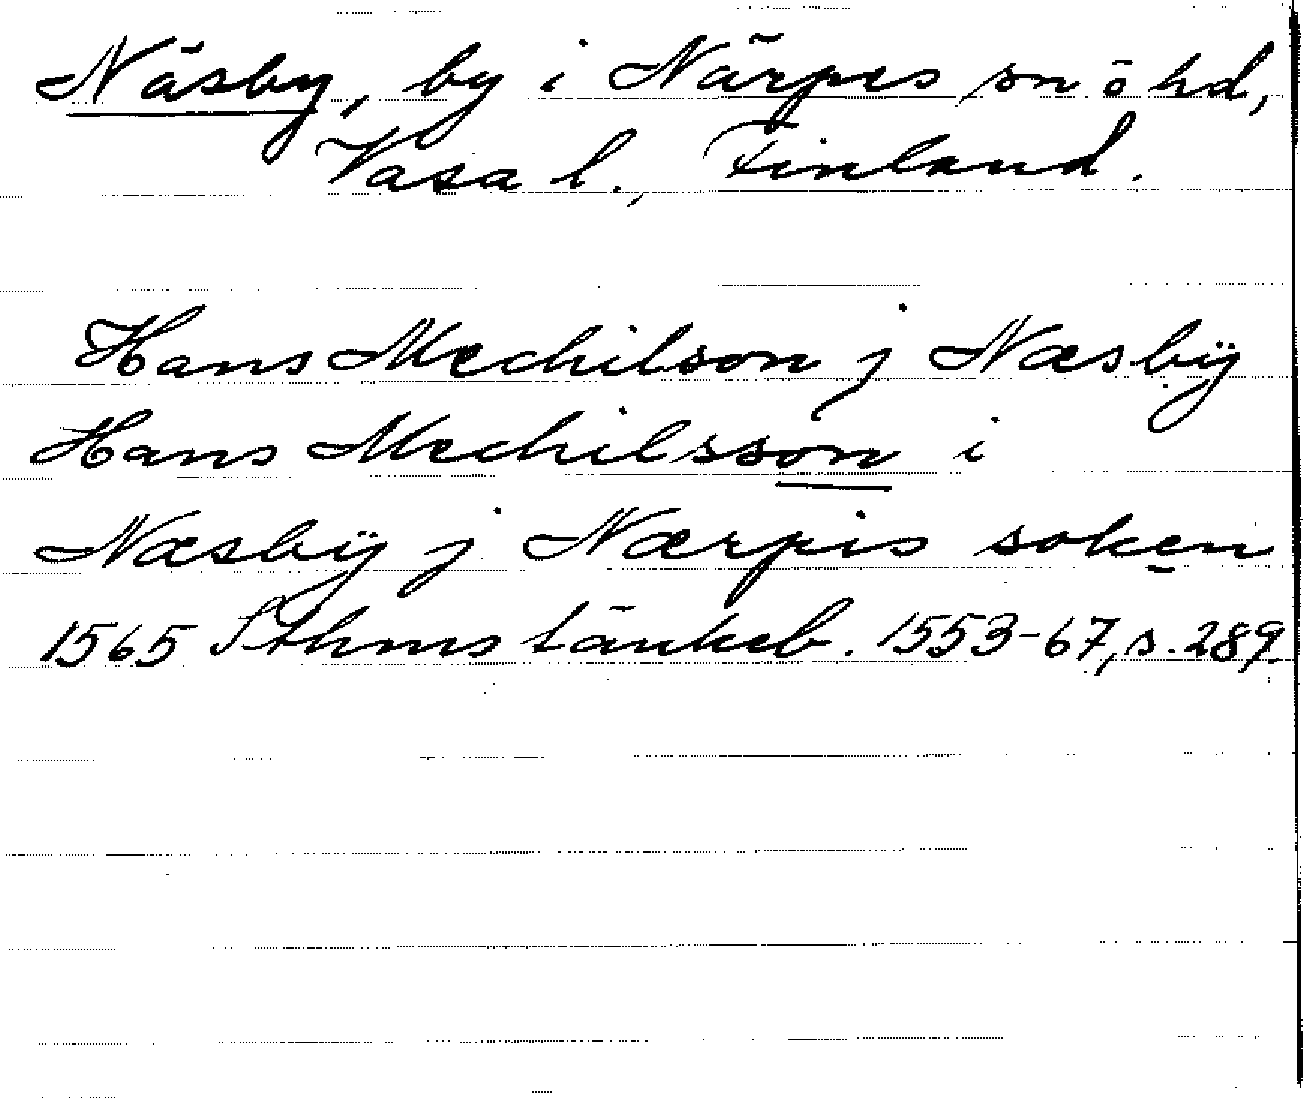 Näsby, by i Närpes sn o hd,
Vasa l., Finland.
Hans Mechilson j Næsbÿ
Hans Mechilsson i
Næsbÿ j Nærpis soken
1565 Sthms tänkeb. 1553-67, s. 289.